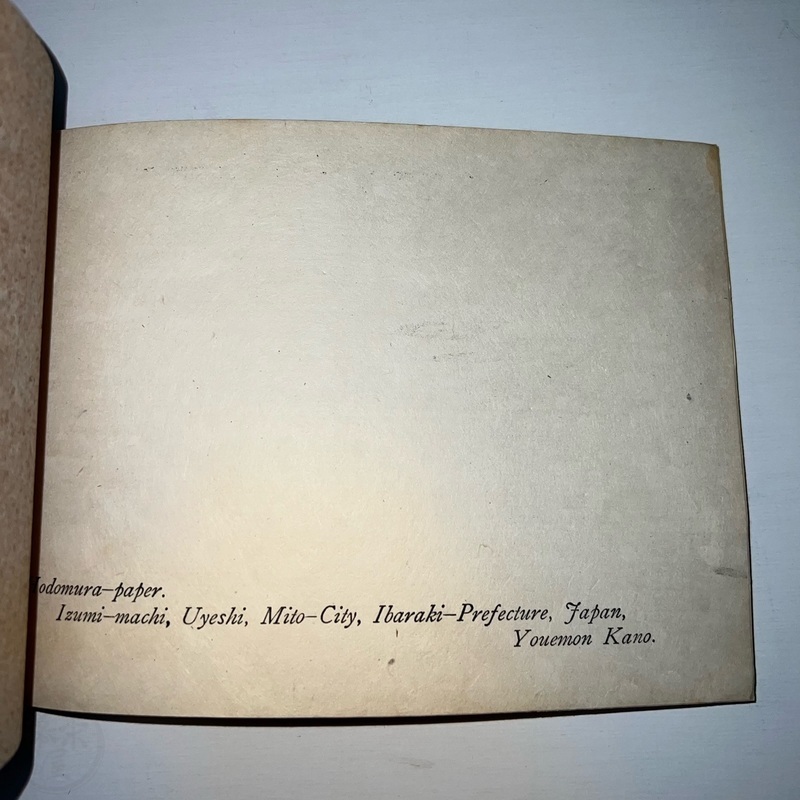 odomura-paper.
Izumi-machi, Uyeshi, Mito-City, Ibaraki-Prefecture, Japan,
Youemon Kano.